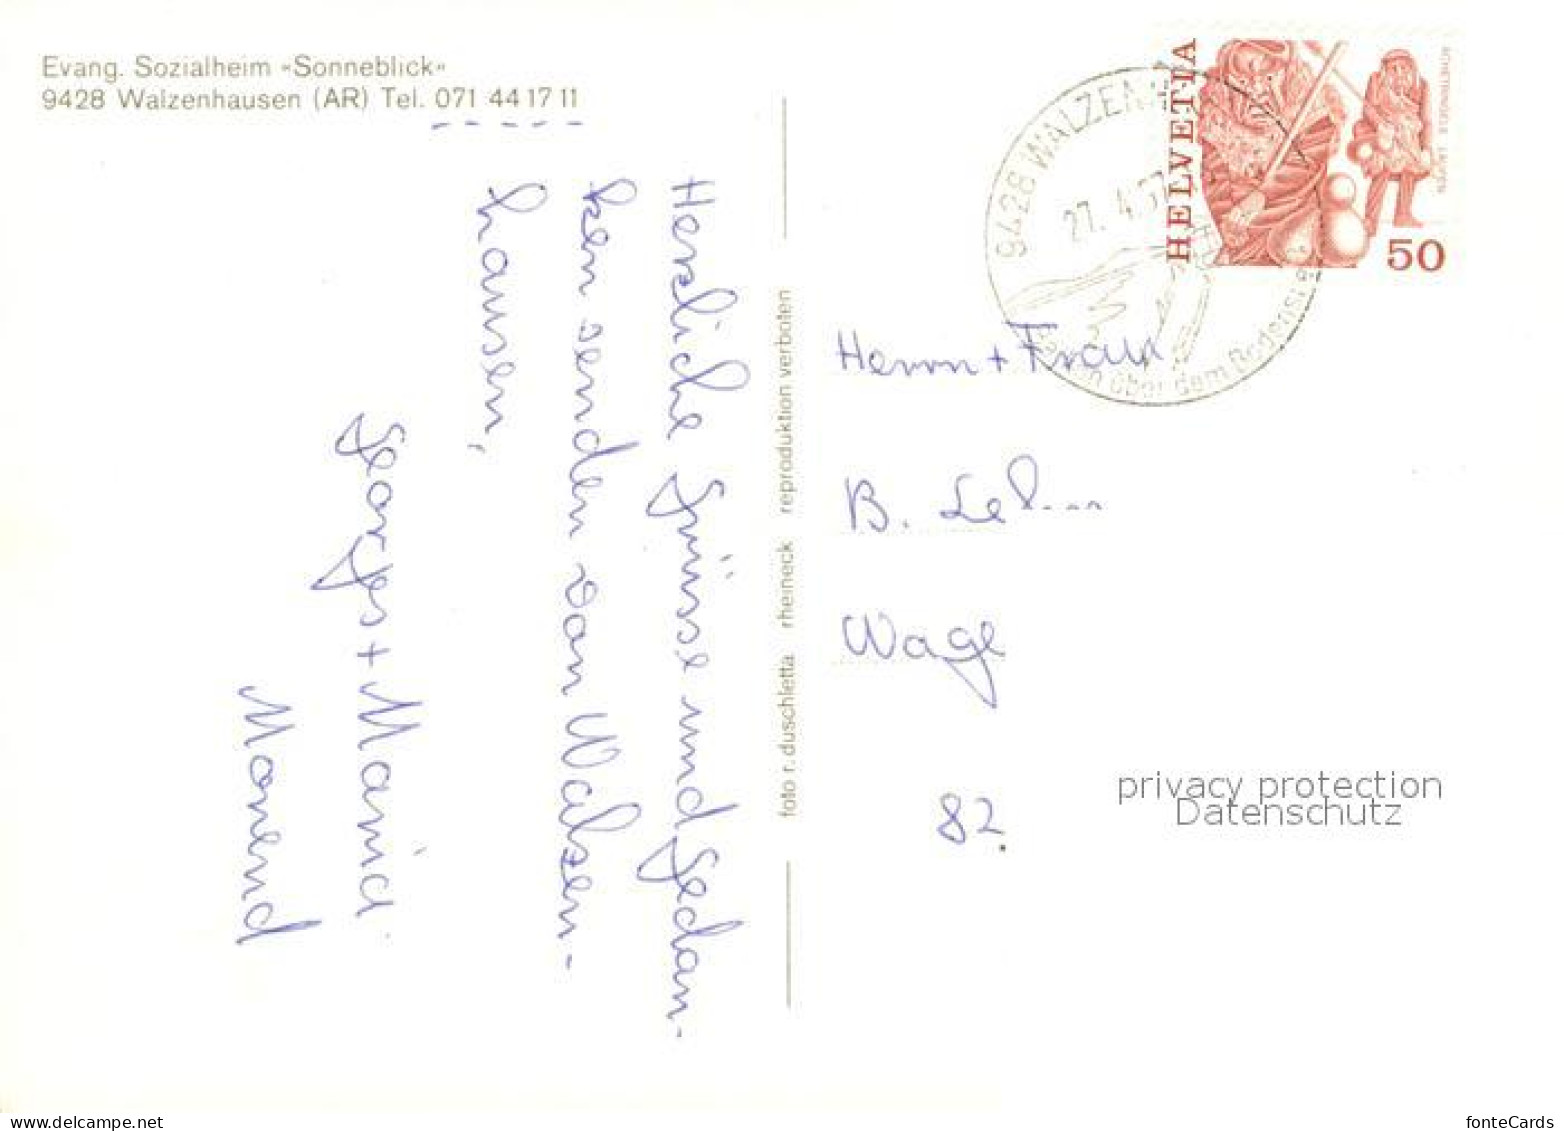 Evang. Sozialheim «Sonneblick»
9428 Walzenhausen (AR) Tel. 071 44 17 11
Herzliche Grüsse und Gedan-
ken senden von Walzen-
hausen,
Georges + Maria
Morend
foto r. duschletta rheineck reproduktion verboten
HELVETIA
50
9428 WALZENH
27. 4.
über dem Bodensee
Herrn + Frau
B.
Wage
82
privacy protection
Datenschutz
my-postcards.net
fonteCards